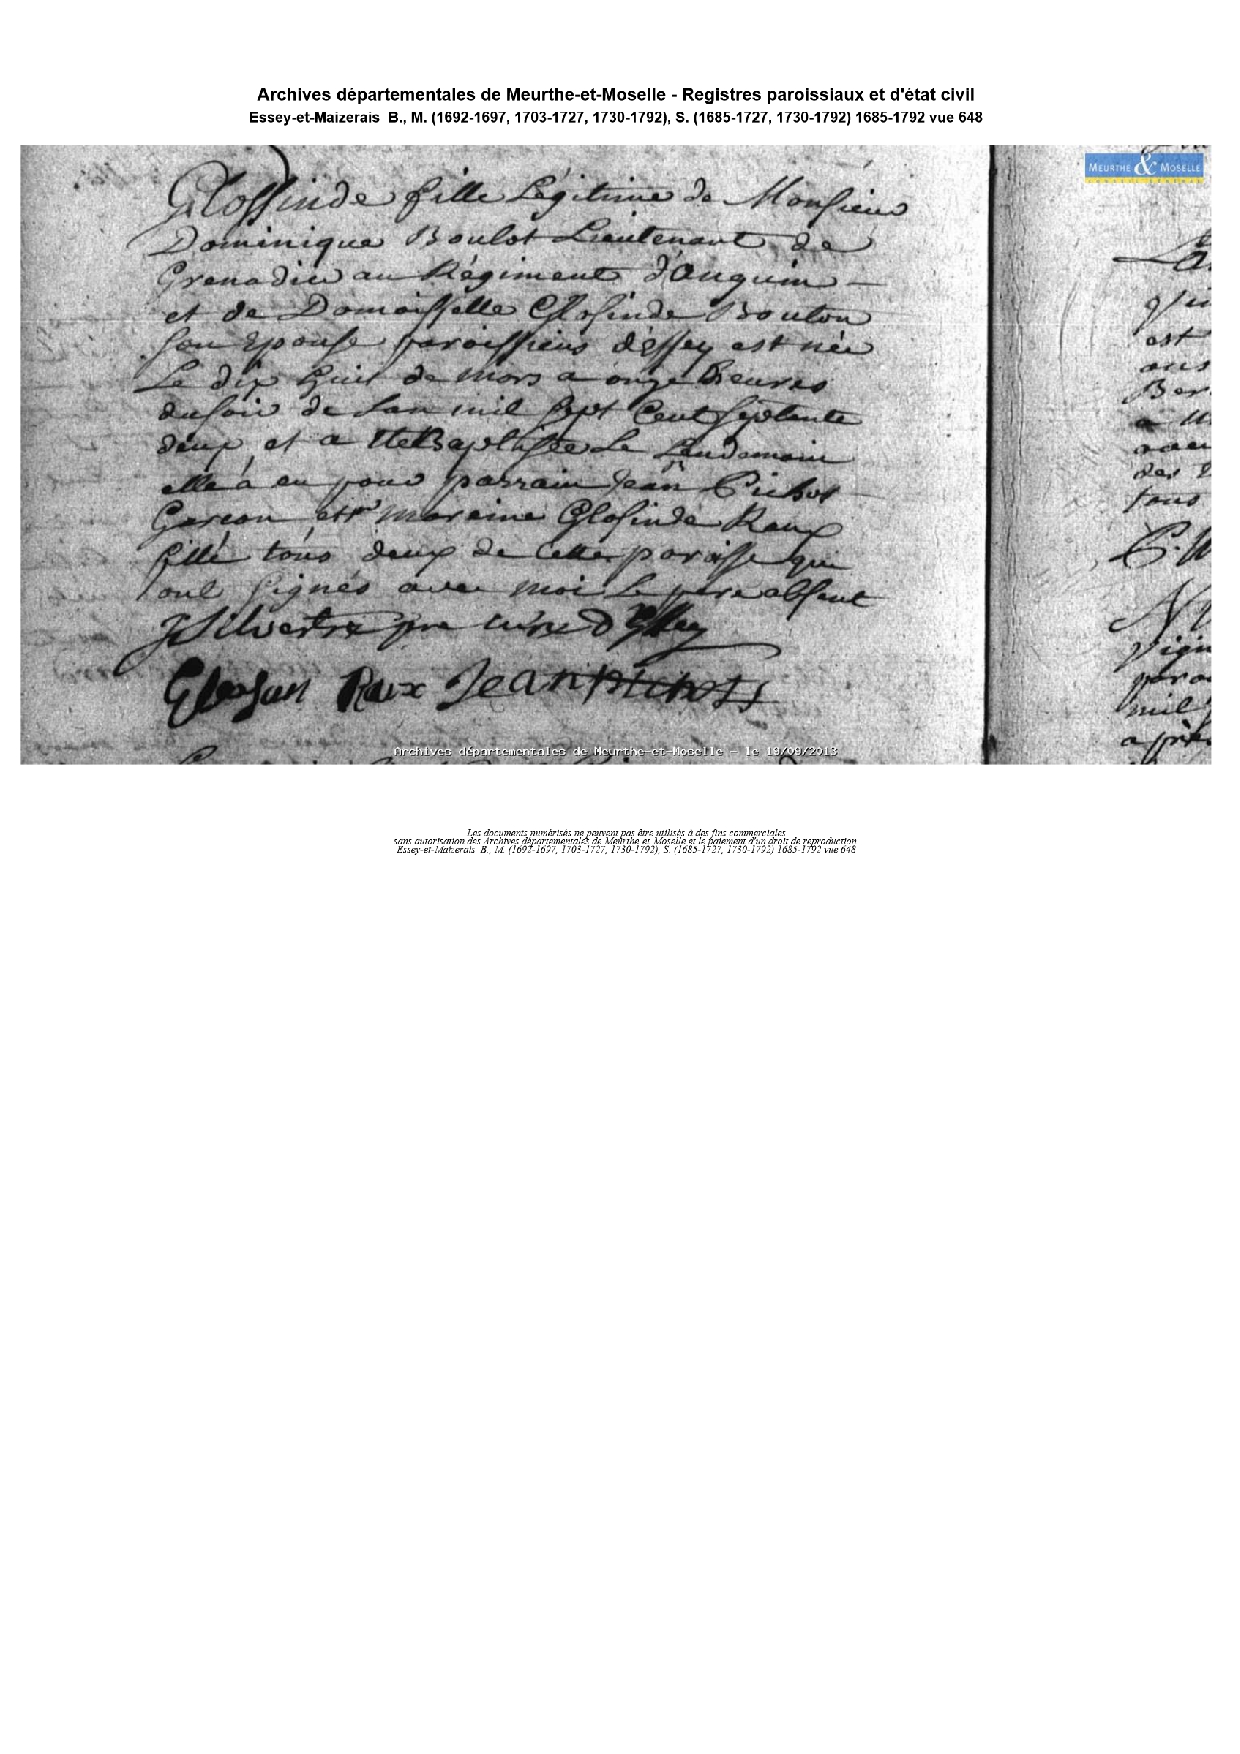 Archives départementales de Meurthe-et-Moselle - Registres paroissiaux et d'état civil
Essey-et-Maizerais B., M. (1692-1697, 1703-1727, 1730-1792), S. (1685-1727, 1730-1792) 1685-1792 vue 648
MEURTHE & MOSELLE
Glossinde fille Légitime de Monsieur
Dominique Boulot Lieutenant de
Grenadier au Régiment d'Anguin
et de Damoisselle Glosinde Bouton
son Epouse paroissiens d'essey est née
Le dix huit de mars a onze heures
du soir de Lan mil sept Cent septante
deux et a ette Baptissée Le Landemain
elle à eu pour parrain Jean Pichot
Garcon et pr maraine Glosinde Raux
fille tous deux de Cette paroisse qui
ont signés avec moi le pere absent
J Silvestre pre curé D'Essey
Glosan Raux Jean pichot
La
qui
est
ans
Ber
a
des
tous
C.
N
vign
paro
mil
apres
Archives départementales de Meurthe-et-Moselle - le 19/09/2013
Les documents numérisés ne peuvent pas être utilisés à des fins commerciales
sans autorisation des Archives départementales de Meurthe et Moselle et le paiement d'un droit de reproduction
Essey-et-Maizerais B., M. (1692-1697, 1703-1727, 1730-1792), S. (1685-1727, 1730-1792) 1685-1792 vue 648